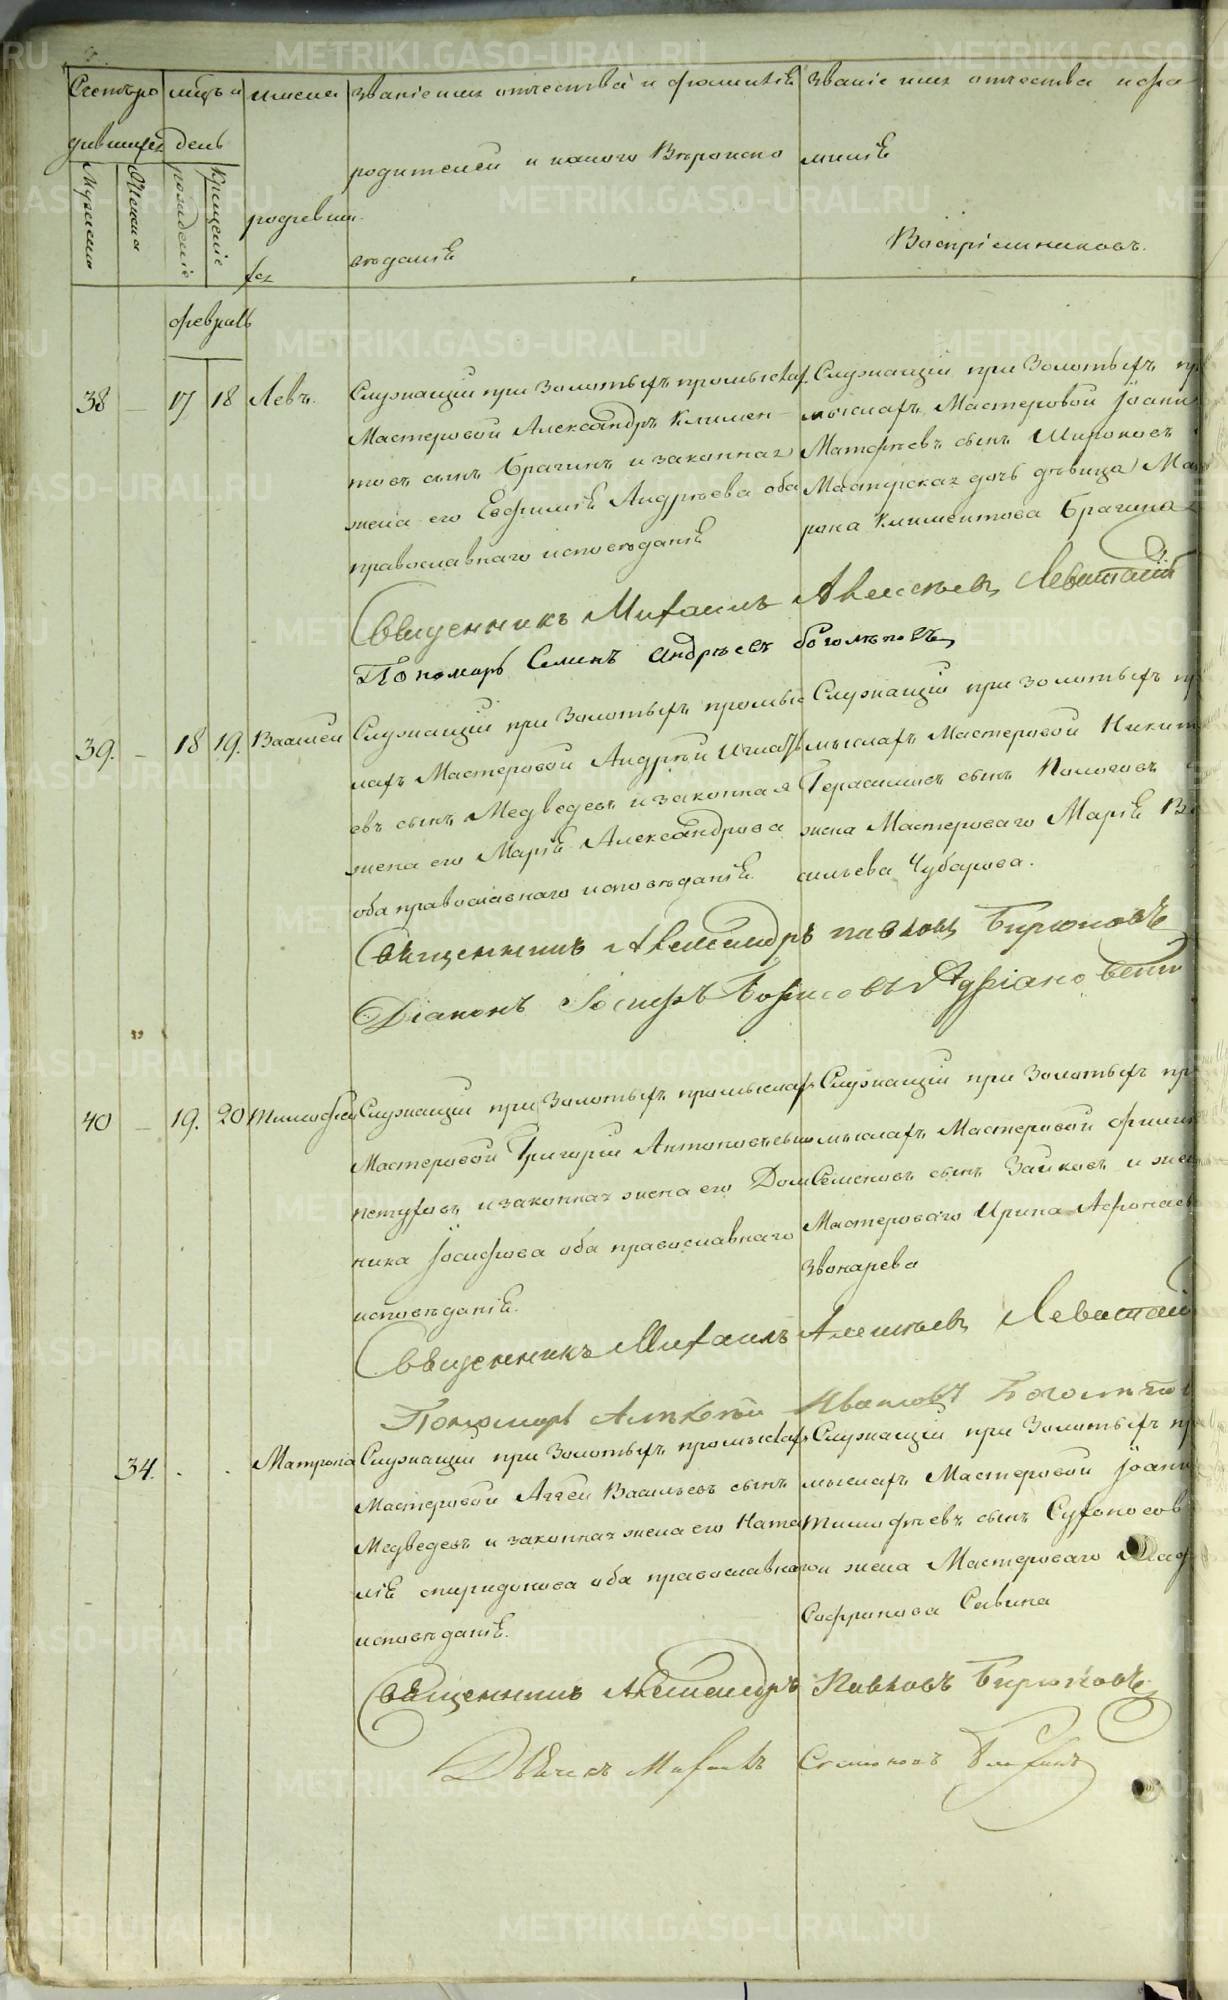 Счетъ ро
дившихся
Мужеска
Женска
мѣсяцъ и
день
рожденіе
крещеніе
имена
родивши
хся
Званіе имя отчества и фамилія
родителей и какого Вѣроиспо
вѣданія
Званіе имя отчества и фа
милія
Воспріемниковъ.
февраль
38 — 17 18 Левъ.
Служащій при Золотыхъ промыслах
Мастеровой Александръ Климен
товъ сынъ Брагинъ и законная
жена его Евфимія Андреева оба
православнаго исповѣданія
Служащій при Золотыхъ пр
мыслахъ Мастеровой Іоанн
Матфеевъ сынъ Широковъ
Мастерская дочь дѣвица Ма
рона Климентова Брагина
Священникъ Михаилъ Алексѣевъ Левитскій
Пономарь Симинъ Андреевъ боголеповъ
39. — 18 19. Василей
Служащій при Золотыхъ промыс
лахъ Мастеровой Андрей Игнать
евъ сынъ Медведевъ и законная
жена его Марія Александрова
оба православнаго исповѣданія.
Служащій при золотыхъ пр
мыслахъ Мастеровой Никит
Герасимовъ сынъ
жена Мастероваго Марія Ва
сильева Чубарова.
Священникъ Александръ павловъ Бирюковъ
Діаконъ Іосифъ Борисовъ Адріановскій
40 — 19. 20 Тимофей
Служащій при Золотыхъ промыслах
Мастеровой Григорій Антоновъ сынъ
петуховъ и законная жена его Дом
ника Іосифова оба православнаго
исповѣданія.
Служащій при Золотыхъ пр
мыслахъ Мастеровой филип
Семеновъ сынъ Зайковъ и жен
Мастероваго Ирина Афонасьев
Звонарева
Священникъ Михаилъ Алексѣевъ Левитскій
Пономарь Алексѣй Ивановъ Боголепов
34. . . Матрона
Служащій при Золотыхъ промыслах
Мастеровой Аггей Васильевъ сынъ
Медведевъ и законная жена его Ната
лія спиридонова оба православнаго
исповѣданія.
Служащій при Золотыхъ пр
мыслахъ Мастеровой Іоанн
Тимофеевъ сынъ Сухоносов
и жена Мастероваго
Софронова Савина
Священникъ Александръ Павловъ Бирюковъ
Дьячекъ Михаилъ Стефановъ
METRIKI.GASO-URAL.RU